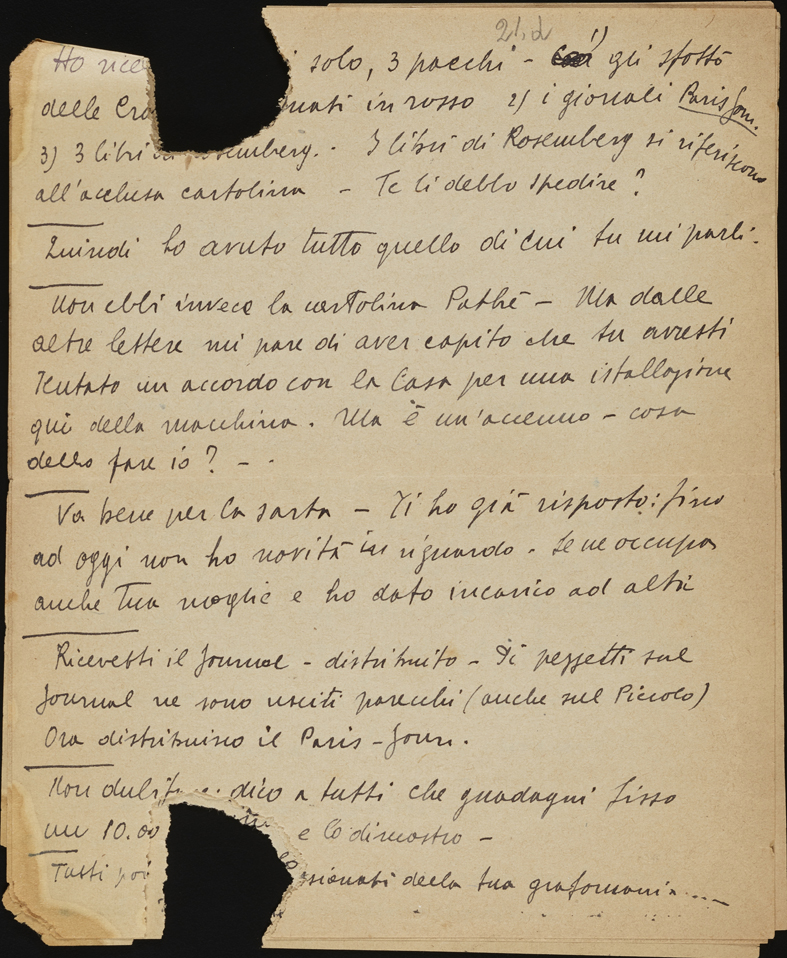 Ho rice i solo, 3 pacchi - 1) gli sfottò
delle Cro nati in rosso 2) i giornali Paris Jour.
3) 3 libri Rosemberg. - I libri di Rosemberg si riferiscono
all'acclusa cartolina - Te li debbo spedire?
Quindi ho avuto tutto quello di cui tu mi parli.
Non ebbi invece la cartolina Pathè - Ma dalle
altre lettere mi pare di aver capito che tu avresti
tentato un accordo con la Casa per una istallazione
qui della macchina. Ma è un'accenno - cosa
debbo fare io? -
Va bene per la sarta - Ti ho già risposto: fino
ad oggi non ho novità in riguardo. Se ne occupa
anche tua moglie e ho dato incarico ad altri
Ricevetti il Journal - distribuito - Di pezzetti sul
Journal ne sono usciti parecchi (anche sul Piccolo)
Ora distribuisco il Paris-Jour.
Non dubit dico a tutti che guadagni fisso
un 10.00 e lo dimostro -
Tutti poi ssionati della tua grafomania....